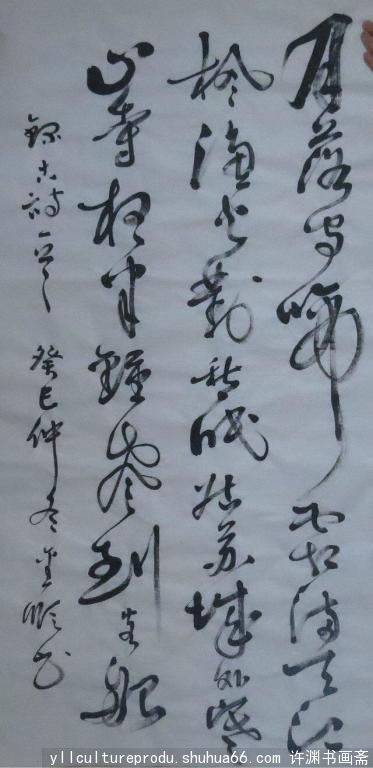 月落烏啼霜滿天江
楓漁火對愁眠姑苏城外寒
山寺夜半鐘聲到客船
錄古詩一首 癸巳仲冬 书
yllcultureprodu.shuhua66.com ※ 许渊书画斋